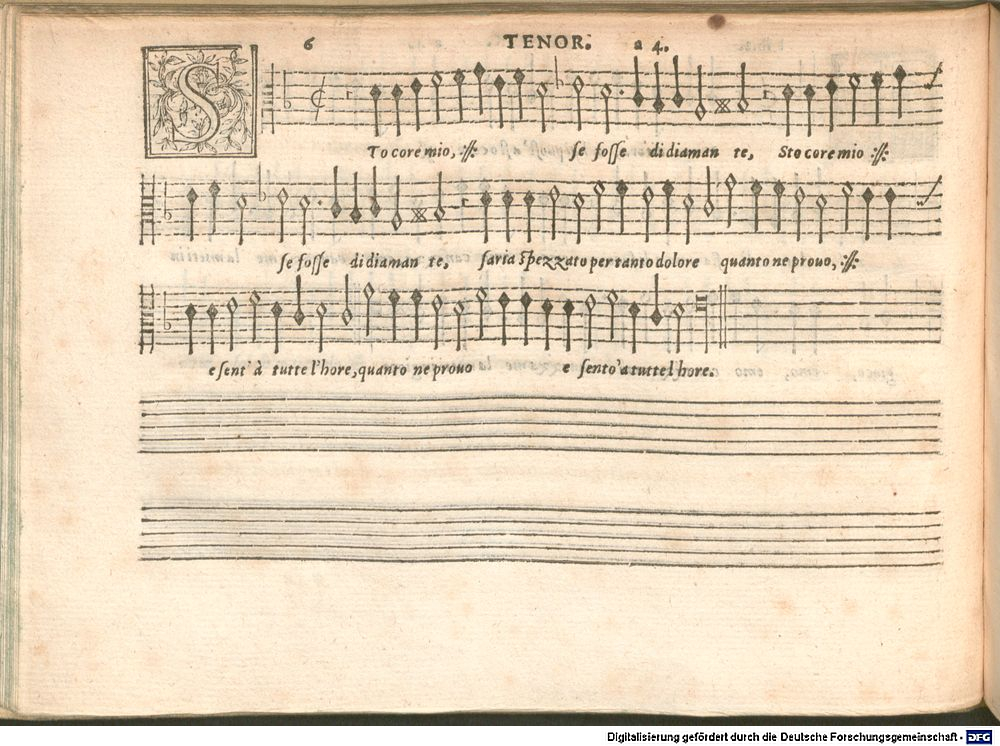 6 TENOR. a 4.
S
To core mio, :||: se fosse di diaman te, Sto core mio :||:
se fosse di diaman te, saria spezzato per tanto dolore quanto ne prouo, :||:
e sent' à tutte l'hore, quanto ne prouo e sento' a tutte l hore.
Digitalisierung gefördert durch die Deutsche Forschungsgemeinschaft - DFG